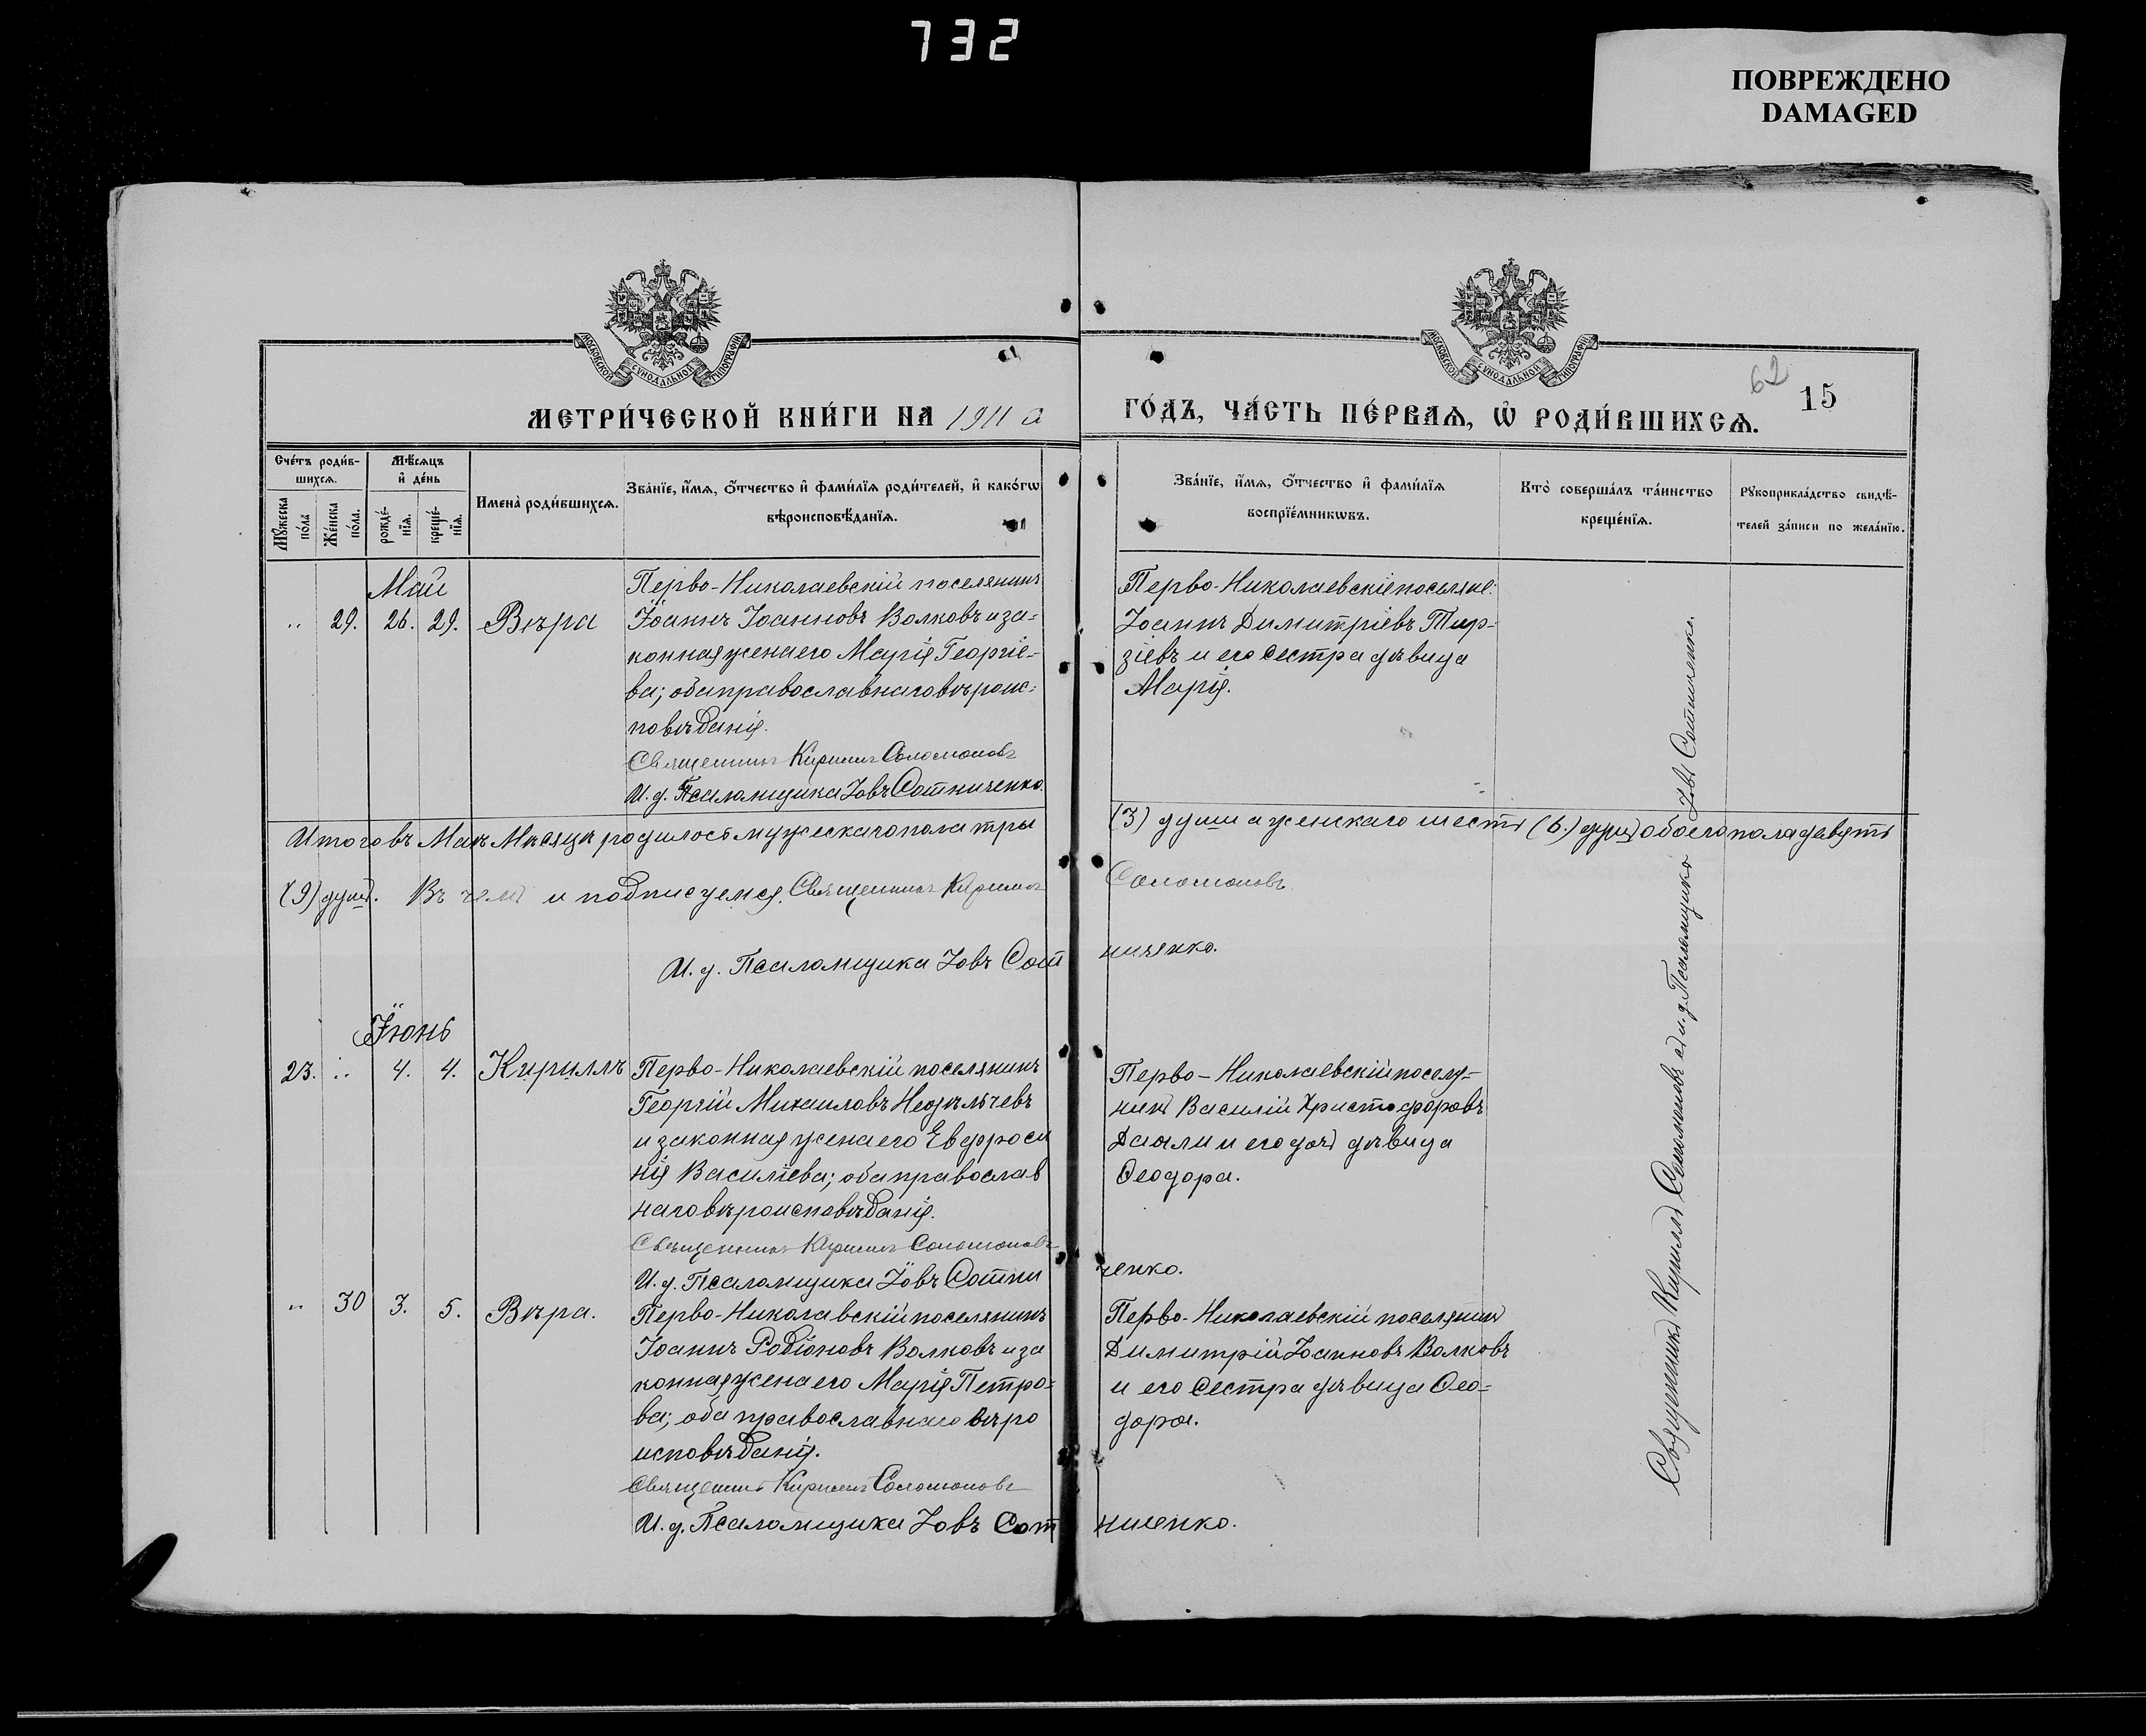 732
ПОВРЕЖДЕНО
DAMAGED
МОСКОВСКОЙ СУНОДАЛЬНОЙ ТИПОГРАФІИ
МОСКОВСКОЙ СУНОДАЛЬНОЙ ТИПОГРАФІИ
62
15
МЕТРИ́ЧЕСКОЙ КНИ́ГИ НА 1911 й
ГО́ДЪ, ЧА́СТЬ ПЕ́РВАѦ, Ѡ҆ РОДИ́ВШИХСѦ.
Сче́тъ роди́в-
шихсѧ.
Мѣ́сѧцъ
и҆ де́нь
Мꙋ́жеска
по́ла
Же́нска
по́ла.
рожде́-
нїѧ.
креще́-
нїѧ.
Имена̀ роди́вшихсѧ.
Зва́нїе, и҆́мѧ, ѻ҆́тчество и҆ фами́лїѧ роди́телей, и҆ како́гѡ
вѣроисповѣ́данїѧ.
Зва́нїе, и҆́мѧ, ѻ҆́тчество и҆ фами́лїѧ
воспрїе́мникѡвъ.
Кто̀ соверша́лъ та́инство
креще́нїѧ.
Рꙋкоприкла́дство свидѣ́-
телей за́писи по жела́нїю.
Май
" 29. 26. 29. Вѣра
Перво-Николаевскій поселянинъ
Іоаннъ Іоанновъ Волковъ и за-
конная жена его Марія Георгіе-
ва; оба православнаго вѣроис-
повѣданія.
Священникъ Кириллъ Соломоновъ
И. д. Псаломщика Іовъ Сотниченко.
Перво-Николаевскіе поселяне:
Іоаннъ Димитріевъ Тир-
зіевъ и его сестра дѣвица
Марія.
Итого въ Маѣ Мѣсяцѣ родилось мужескаго пола три (3) души а женскаго шесть (6.) душъ обоего пола девять
(9) душъ. Въ чемъ и подписуемся. Священникъ Кириллъ Соломоновъ
И. д. Псаломщика Іовъ Сотниченко.
Іюнь
23. " 4. 4. Кириллъ
Перво-Николаевскій поселянинъ
Георгій Михаиловъ Недѣльчевъ
и законная жена его Евфроси
нія Василіева; оба православ
наго вѣроисповѣданія.
Священникъ Кириллъ Соломоновъ
И. д. Псаломщика Іовъ Сотниченко.
Перво-Николаевскій поселя-
нинъ Василій Христофоровъ
и его дочь дѣвица
Ѳеодора.
" 30 3. 5. Вѣра.
Перво-Николавскій поселянинъ
Іоаннъ Родіоновъ Волковъ и за
конная жена его Марія Петро-
ва; оба православнаго вѣро
исповѣданія.
Священникъ Кириллъ Соломоновъ
И. д. Псаломщика Іовъ Сотниченко.
Перво-Николаевскій поселянинъ
Димитрій Іоанновъ Волковъ
и его сестра дѣвица Ѳео-
дора.
Священникъ Кириллъ Соломоновъ съ и. д. Псаломщика Іовъ Сотниченко.